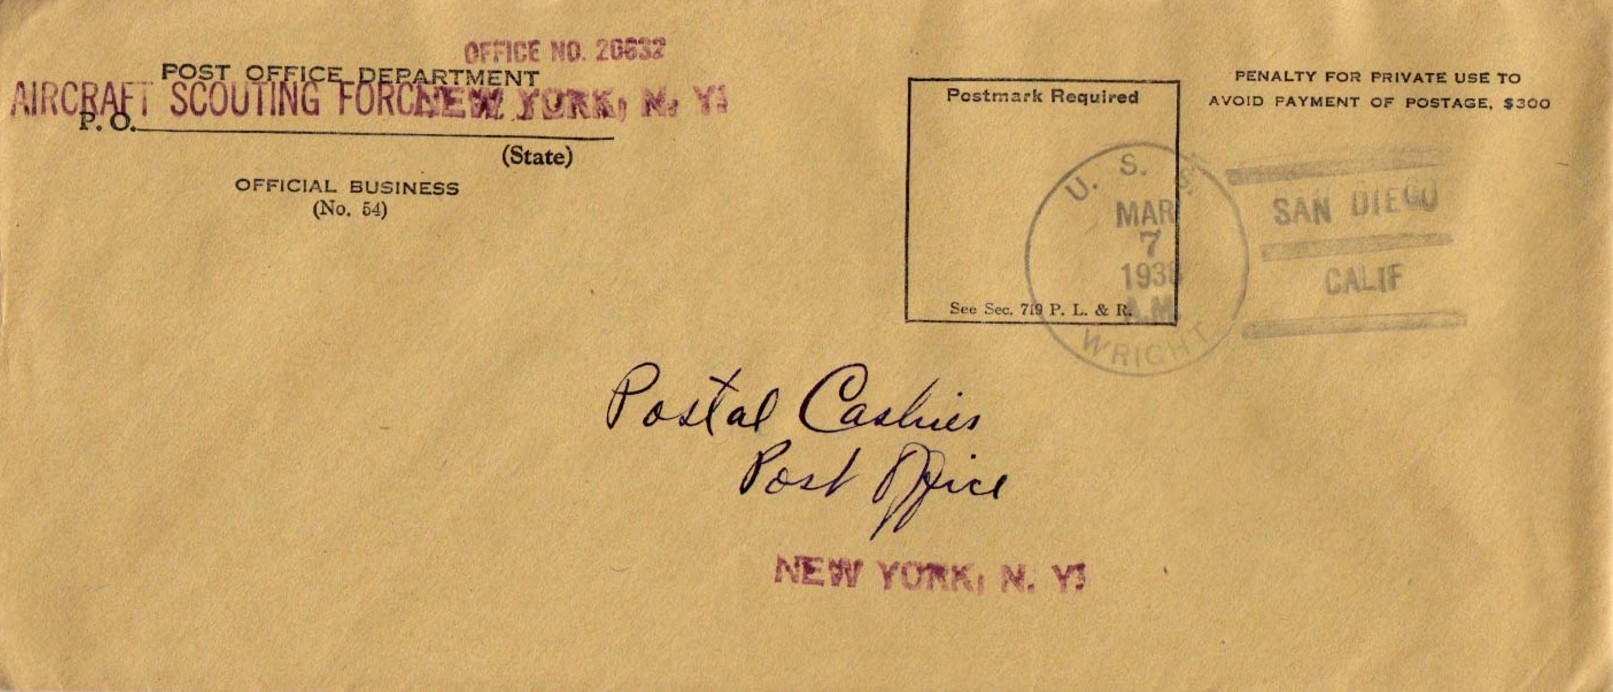 OFFICE NO. 20632
POST OFFICE DEPARTMENT
AIRCRAFT SCOUTING FORCE NEW YORK, N. Y.
P. O.
(State)
OFFICIAL BUSINESS
(No. 54)
Postmark Required
See Sec. 719 P. L. & R.
PENALTY FOR PRIVATE USE TO
AVOID PAYMENT OF POSTAGE, $300
U. S. S.
MAR
7
1938
A.M.
WRIGHT
SAN DIEGO
CALIF
Postal Cashier
Post Office
NEW YORK, N. Y.